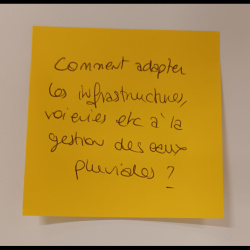 Comment adapter
les infrastructures,
voieries etc à la
gestion des eaux
pluviales ?